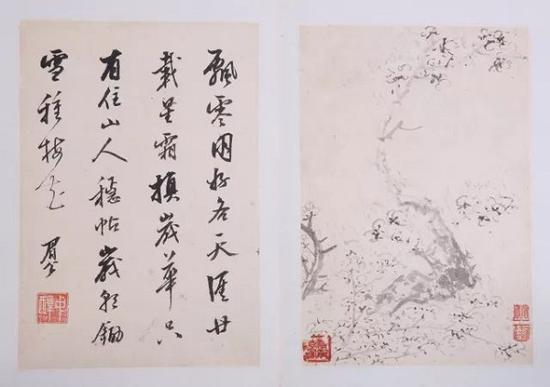 飄零同好各天涯廿
載星霜換歲華只
有住山人穩帖歲朝鋤
雪種梅花